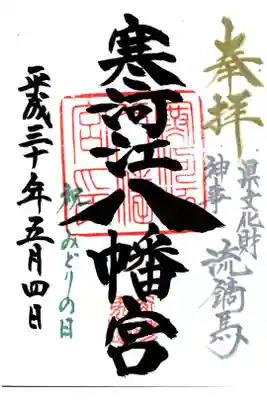 奉拝
県文化財
神事 流鏑馬
寒河江八幡宮
祝 みどりの日
平成三十年五月四日